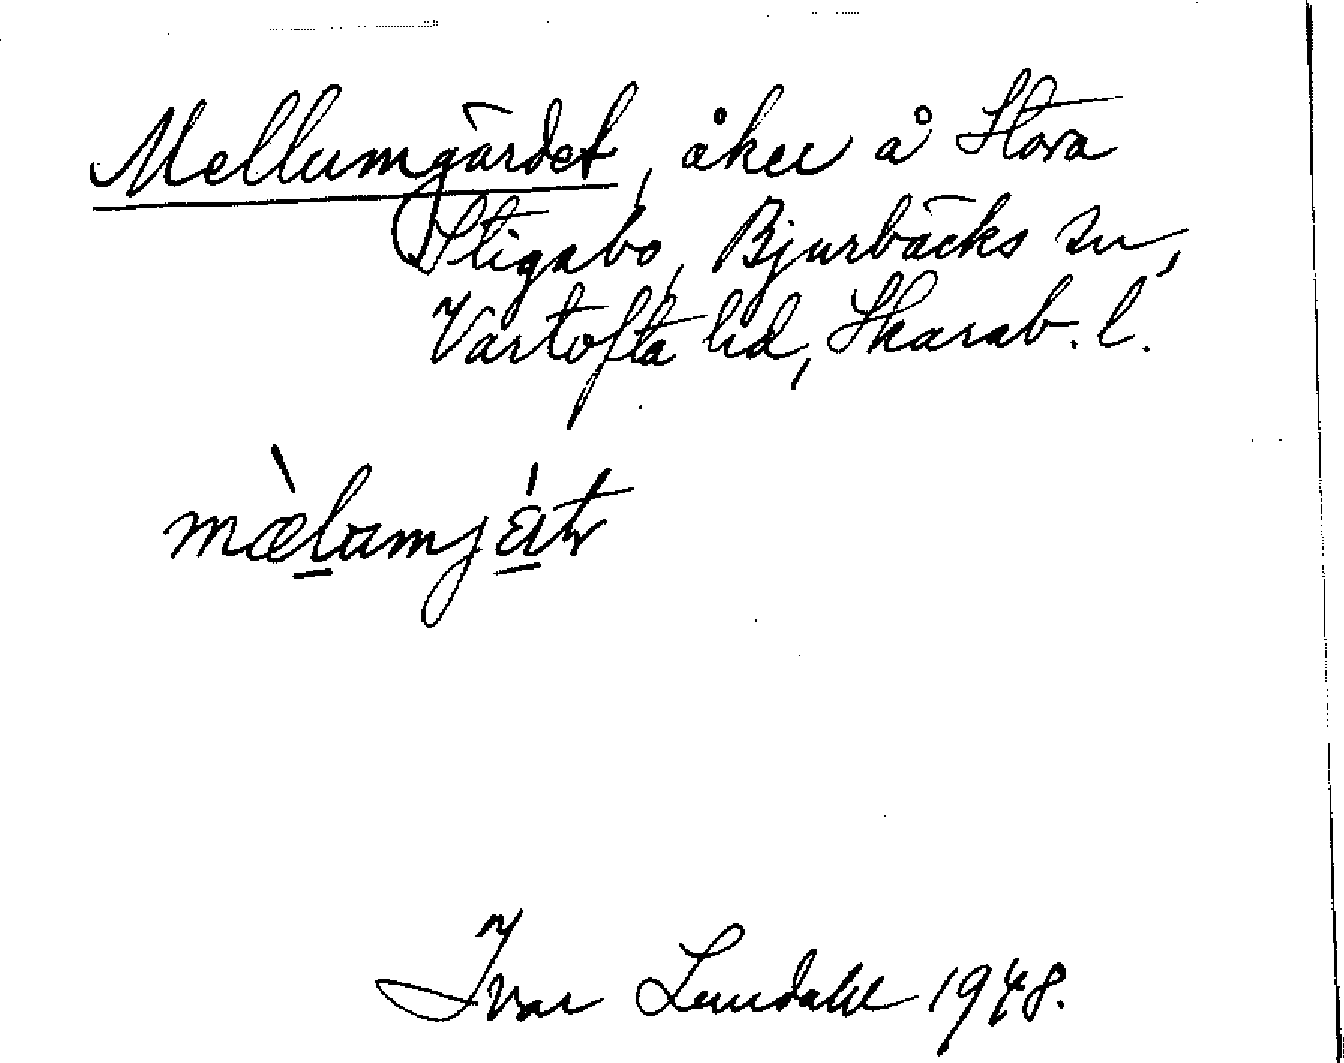 Mellumgärdet, åker å Stora
Stigabo, Bjurbäcks sn,
Vartofta hd, Skarab. l.
mæ̀lamjátɩ
Ivar Lundahl 1948.